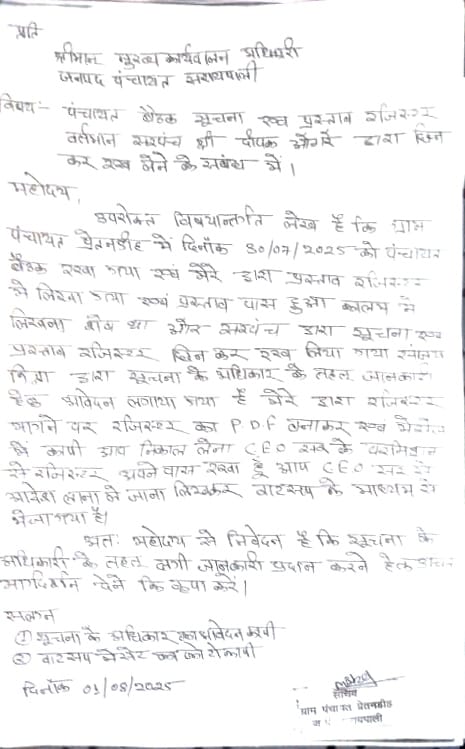 प्रति
श्रीमान मुख्य कार्यपालन अधिकारी
जनपद पंचायत सरायपाली
विषय:- पंचायत बैठक सूचना एवं प्रस्ताव रजिस्टर
वर्तमान सरपंच श्री दीपक द्वारा छिन
कर रख लेने के संबंध में।
महोदय,
उपरोक्त विषयान्तर्गत लेख है कि ग्राम
पंचायत प्रेतनडीह में दिनाँक 30/07/2025 को पंचायत
बैठक रखा गया एवं मेरे द्वारा प्रस्ताव रजिस्टर
में लिखा गया एवं प्रस्ताव पास हुआ कालम में
लिखना शेष था और सरपंच द्वारा सूचना एवं
प्रस्ताव रजिस्टर छिन कर रख लिया गया
द्वारा सूचना के अधिकार के तहत जानकारी
हेतु आवेदन लगाया गया है मेरे द्वारा रजिस्टर
मांगने पर रजिस्टर का P.D.F बनाकर
कापी आप निकाल लेना CEO सर के
से रजिस्टर अपने पास रखा हूँ आप CEO सर से
आदेश लाना ले जाना लिखकर वाटसप के माध्यम से
भेजा गया है।
अतः महोदय से निवेदन है कि सूचना के
अधिकारी के तहत लगी जानकारी प्रदान करने हेतु उचित
मार्गदर्शन देने कि कृपा करें।
संलग्न
① सूचना के अधिकार का आवेदन कापी
② वाटसप मैसेट
दिनाँक 01/08/2025
सचिव
ग्राम पंचायत प्रेतनडीह